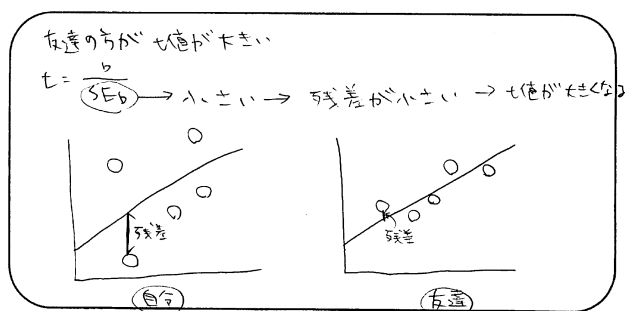 友達の方が t値が大きい
t = b / SEb → 小さい → 残差が小さい → t値が大きくなる
残差
残差
自分
友達